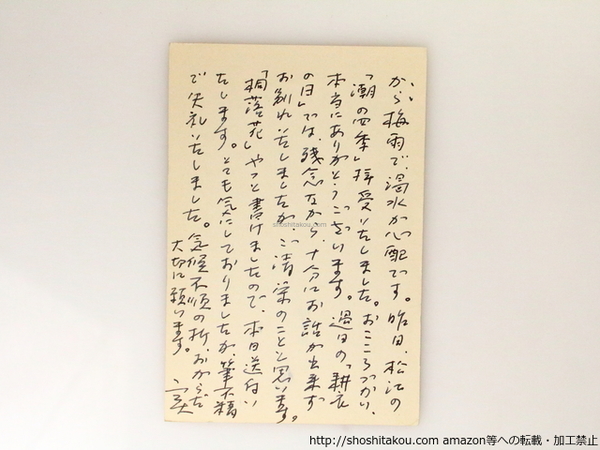 から梅雨で、渇水が心配です。昨日、松江の
「潮の四季」拝受いたしました。おこころづかい、
本当にありがとうございます。過日の「耕衣
の日」では、残念ながら、十分にお話が出来ず
お別れいたしましたが、ご清栄のことと思います。
「桐落花」やっと書けましたので、本日送付い
たします。とても気にしておりましたが、筆不精
で失礼いたしました。気候不順の折、おからだ
大切に願います。
shoshitakou.com
http://shoshitakou.com amazon等への転載・加工禁止